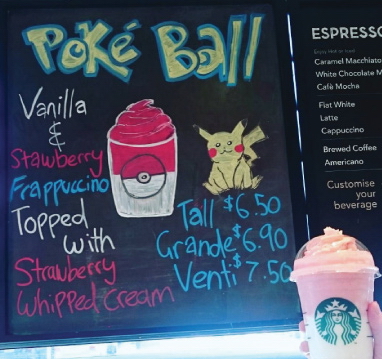 Poké Ball
Vanilla
&
Stawberry
Frappuccino
Topped
with
Strawberry
Whipped Cream
Tall $6.50
Grande $6.90
Venti $7.50
ESPRESSO
Enjoy Hot or Iced
Caramel Macchiato
White Chocolate M
Cafè Mocha
Flat White
Latte
Cappuccino
Brewed Coffee
Americano
Customise
your
beverage